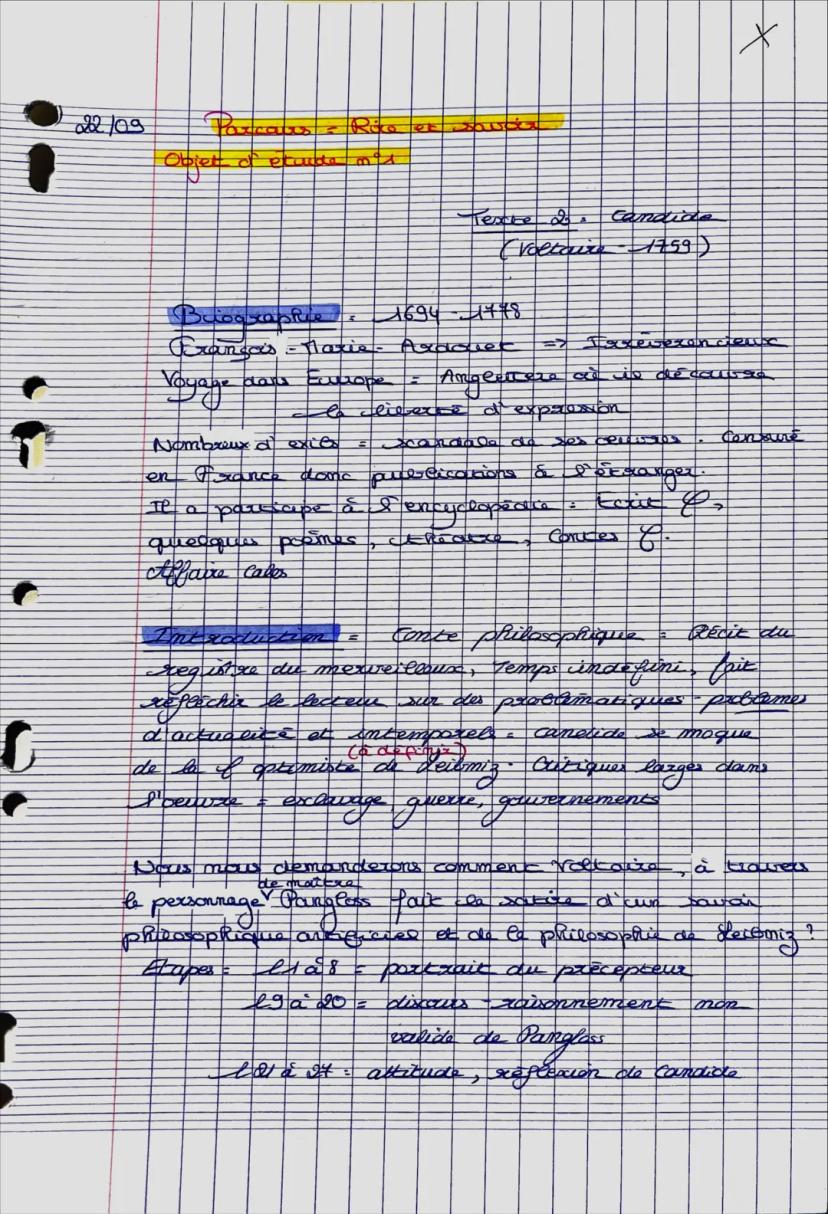 X
22/09 Parcours = Rire et savoir
Objet d'étude n°1
Texte 2 : Candide
(Voltaire - 1759)
Biographie = 1694 - 1778
François - Marie - Arouet => Irrévérencieux
Voyage dans Europe = Angleterre où il découvre
la liberté d'expression
Nombreux d'exils = scandale de ses oeuvres. Censuré
en France donc publications à l'étranger.
Il a participé à l'encyclopédie = Ecrit φ,
quelques poèmes, théâtre, Contes φ.
Affaire Calas
Introduction = Conte philosophique = Récit du
registre du merveilleux, Temps indéfini, fait
réfléchir le lecteur sur des problématiques - problèmes
d'actualité et intemporels = candide se moque
(à définir)
de la φ optimiste de Leibniz. Critiques larges dans
l'oeuvre = esclavage, guerre, gouvernements
Nous nous demanderons comment Voltaire, à travers
de maître
le personnage Pangloss fait la satire d'un savoir
philosophique artificiel et de la philosophie de Leibniz ?
Etapes = l 1 à 8 = portrait du précepteur
l 9 à 20 = discours - raisonnement non
valide de Pangloss
l 21 à 27 = attitude, réflexion de Candide